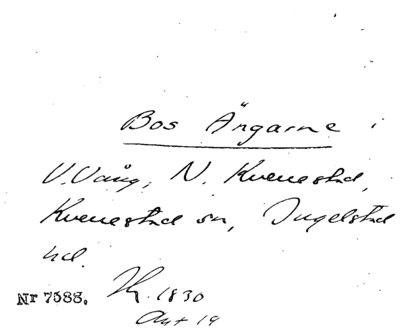 Bos Ängarne i
V. Vång, N. Kvenestad,
Kvenestad sn, Ingelstad
hd.
Nr 7588. 1830
Akt 19